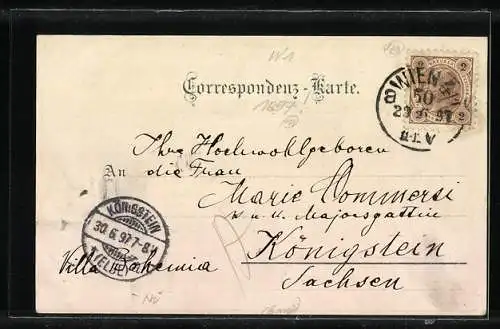 W1
Correspondenz-Karte.
1897
2 2
WIEN
50
29 6 97
8-9. V
Ihre Hochwohlgeboren
An die Frau
Marie Commersi
k. u. k. Majorsgattin
Königstein
Villa Bohemia
Sachsen
KÖNIGSTEIN
30.6.97.7-8V.
(ELBE)